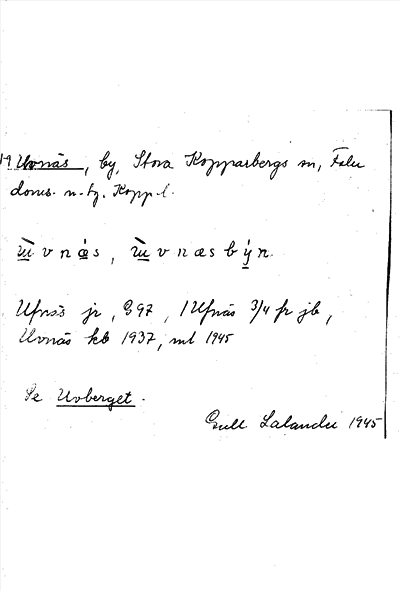 Uvnäs, by, Stora Kopparbergs sn, Falu
doms. n. tg. Kopp. l.
ùvnǽs, ùvnæsbýn.
Ufnäs jr, G97, 1 Ufnäs 3/4 fr jb,
Uvnäs kb 1937, ml 1945
Se Uvberget.
Gull Lalander 1945